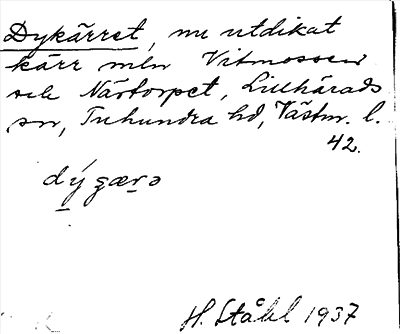 Dykärret, nu utdikat
kärr mln Vitmossen
och Nästorpet, Lillhärads
sn, Tuhundra hd, Västm. l.
42.
dý gæṟə
H. Ståhl 1937